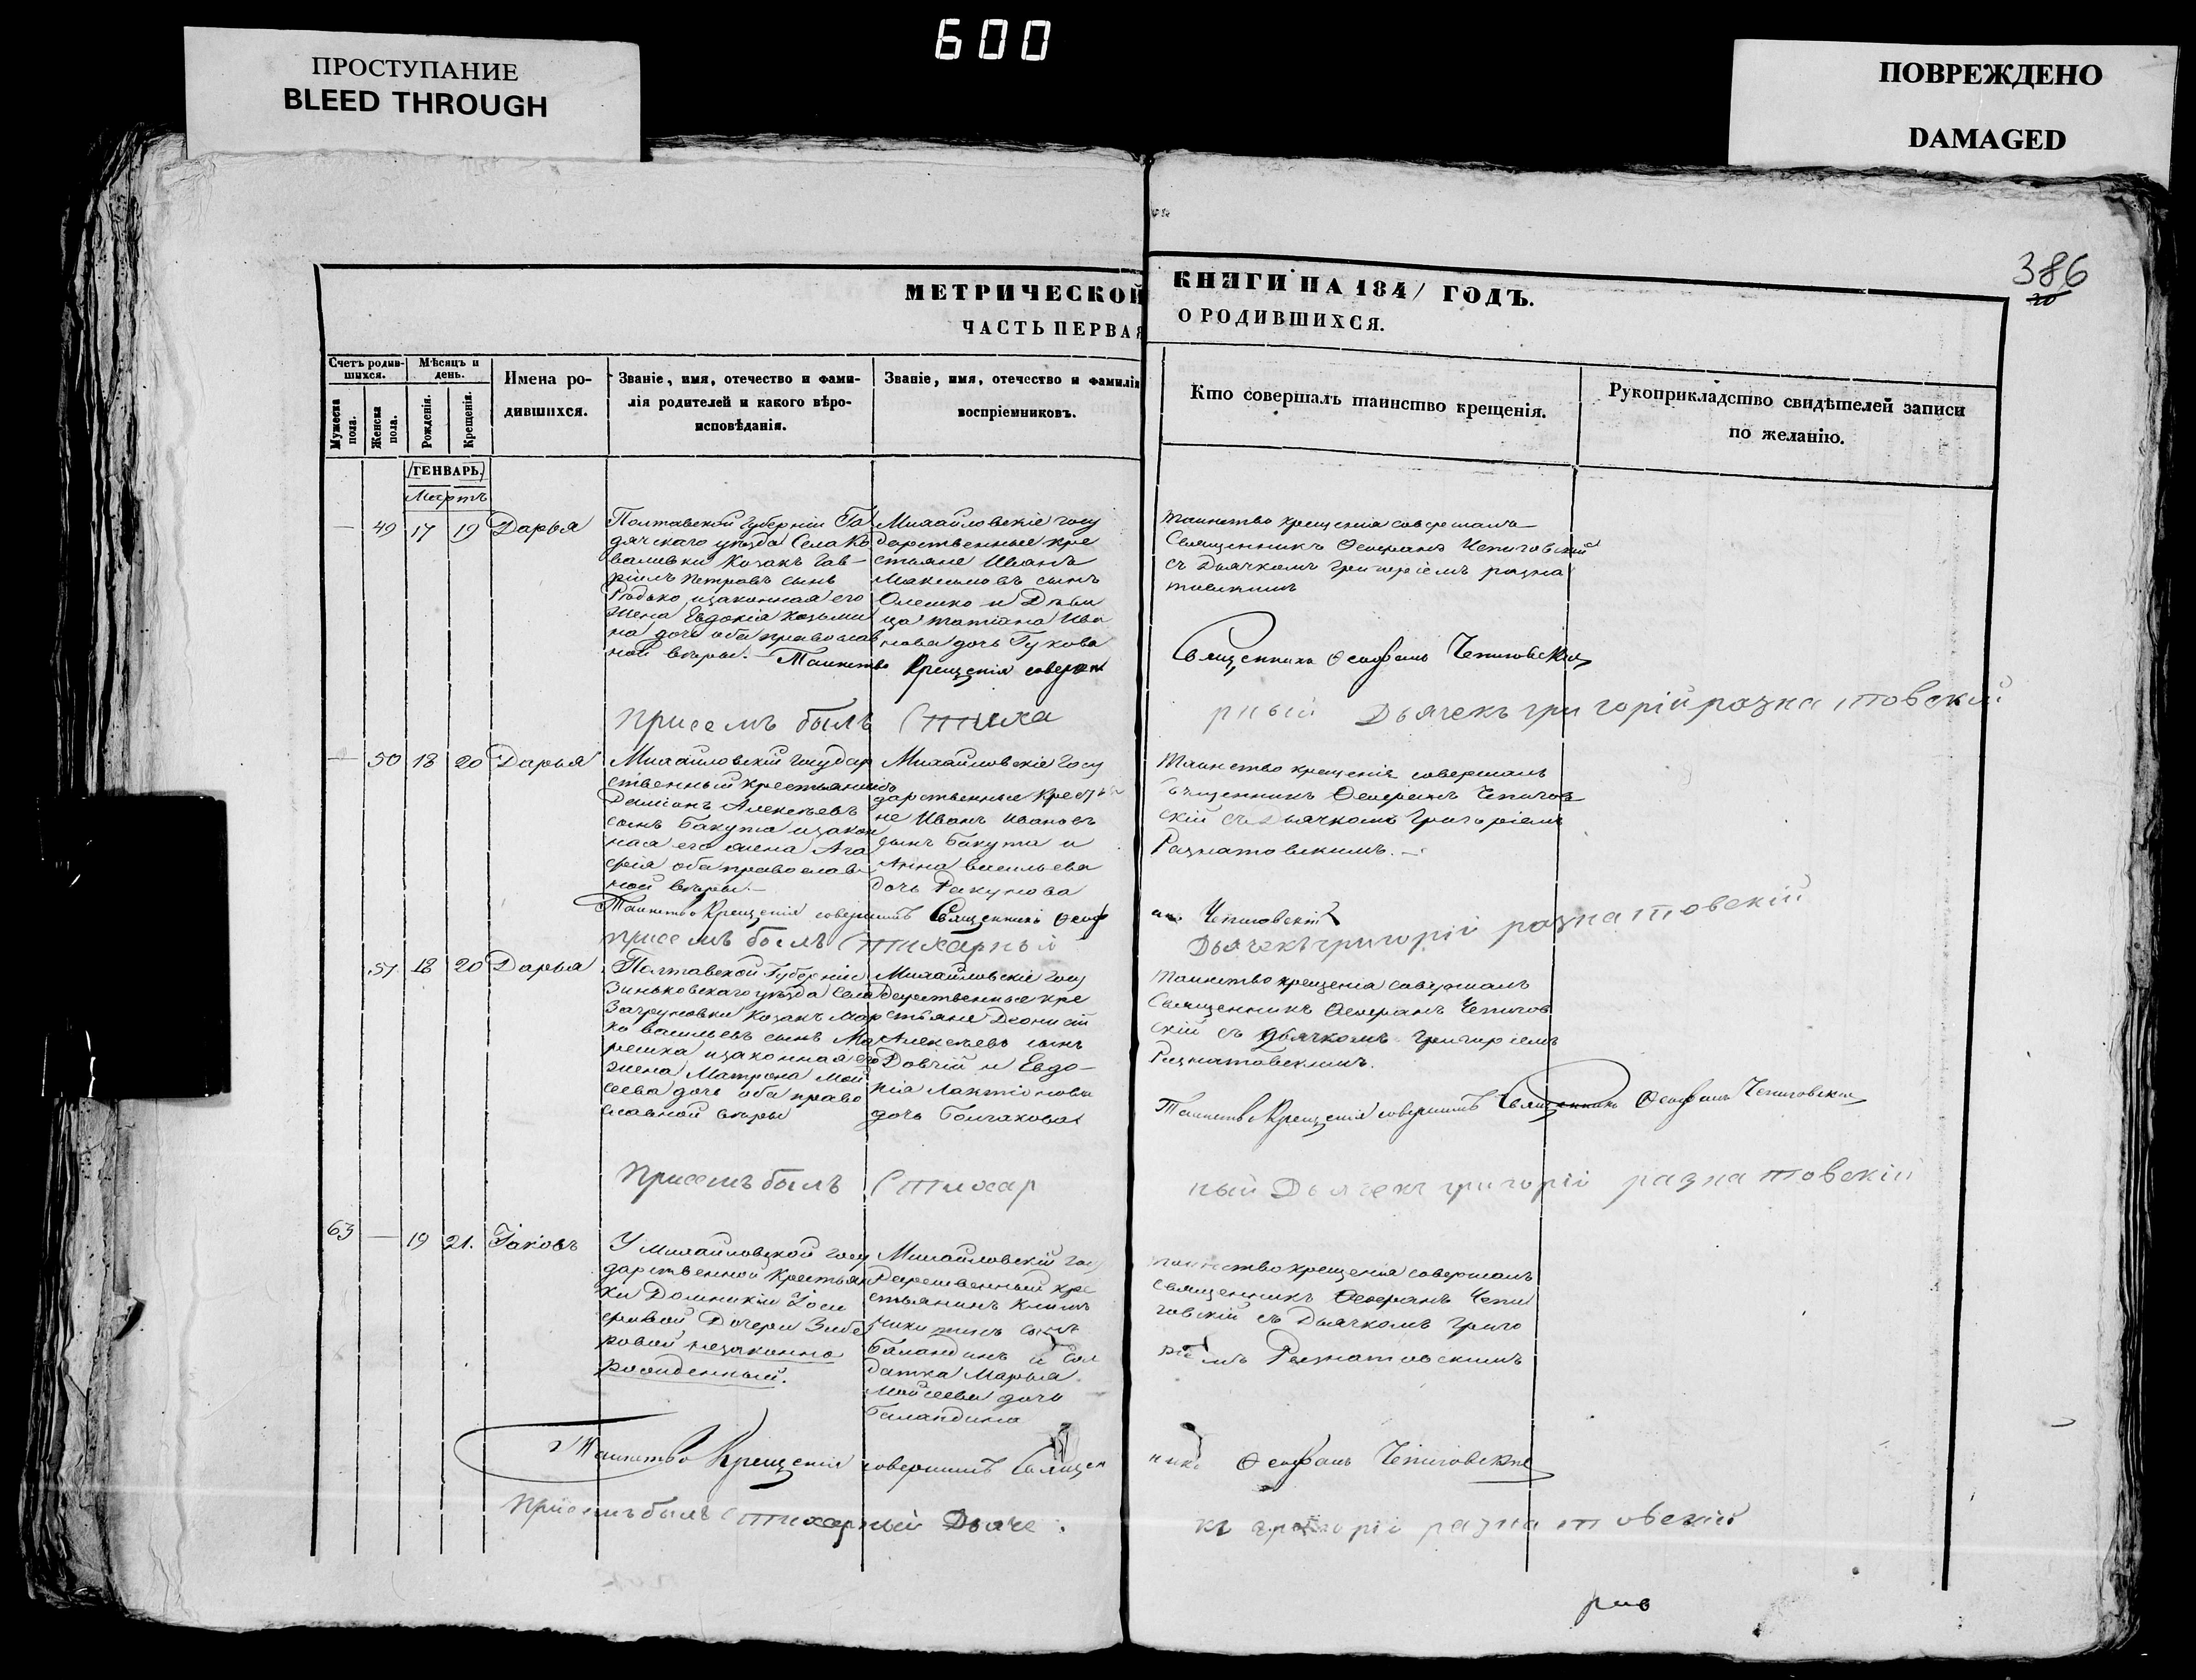 600
ПРОСТУПАНИЕ
BLEED THROUGH
ПОВРЕЖДЕНО
DAMAGED
386
МЕТРИЧЕСКОЙ КНИГИ НА 1841 ГОДЪ.
ЧАСТЬ ПЕРВАЯ О РОДИВШИХСЯ.
Счетъ родив-
шихся.
Мужеска
пола.
Женска
пола.
Мѣсяцъ и
день.
Рожденія.
Крещенія.
Имена ро-
дившихся.
Званіе, имя, отечество и фами-
лія родителей и какого вѣро-
исповѣданія.
Званіе, имя, отечество и фамилія
воспріемниковъ.
Кто совершалъ таинство крещенія.
Рукоприкладство свидѣтелей записи
по желанію.
ГЕНВАРЬ.
Мартъ
— 49 17 19 Дарья
Полтавской Губерніи Га
дячскаго уѣзда Села Ко
валивки Козакъ Гав-
ріилъ Петровъ сынъ
Рѣдько изаконная его
жена Евдокія Козьми
на дочь оба православ
ной вѣры.
Михайловскіе госу
дарственные кре
стьяне Иванъ
Максимовъ сынъ
Олешко и Дѣви
ца татіана Ива
нова дочь Гукова
таинство крещенія совершалъ
Священникъ Ѳеофанъ Чепиговскій
съ Дьячкомъ григоріемъ разна
товскимъ
Таинство Крещенія соверш
Священникъ Ѳеофанъ Чепиговскій
присемъ былъ Стиха
рный Дьячекъ григорій разнатовскій
— 50 18 20 Дарья
Михайловскій государ
ственный крестьянинъ
Даміанъ Алексѣевъ
сынъ Бакута изакон
ная его жена Ага
фія оба православ
ной вѣры.—
Михайловскіе госу
дарственные Крестья
не Иванъ Ивановъ
сынъ Бакута и
Анна васильева
дочь Ракунова
Таинство крещенія совершалъ
Священникъ Ѳеофанъ Чепигов
скій съ Дьячкомъ Григоріемъ
Разнатовскимъ.—
Таинство Крещенія совершилъ Священникъ Ѳеоф
анъ Чепиговскій
присемъ былъ Стихарный
Дьячекъ григорій разнатовскій
51 18 20 Дарья
Полтавской Губерніи
Зиньковскаго уѣзда Села
Загруновки Козакъ Мар
ко васильевъ сынъ Ма
решка изаконная его
жена Матрона Мои
сеева дочь оба право
славной вѣры
Михайловскіе госу
дарственные кре
стьяне Деонисій
Алексѣевъ сынъ
Довгій и Евдо-
кія Лактіонова
дочь
таинство крещенія совершалъ
Священникъ Ѳеофанъ Чепигов
скій съ Дьячкомъ григоріемъ
Разнатовскимъ.
Таинство Крещенія совершилъ Священникъ Ѳеофанъ Чепиговскій
Присемъ былъ Стихар
ный Дьячекъ григорій разнатовскій
63 — 19 21. Іаковъ
У Михайловской госу
дарственной Крестьян
ки Домникіи Іоси
фовой Дочери
незаконно
рожденный.
Михайловскій госу
дарственный кре
стьянинъ Климъ
Никитинъ сынъ
Баландинъ и Сол
датка Марья
Моисеева дочь
Баландина
таинство крещенія совершалъ
священникъ Ѳеофанъ Чепи
говскій съ Дьячкомъ Григо
ріемъ Разнатовскимъ
Таинство Крещенія совершилъ Священ
никъ Ѳеофанъ Чепиговскій
присемъ былъ Стихарный Дьяче
къ григорій разнатовскій